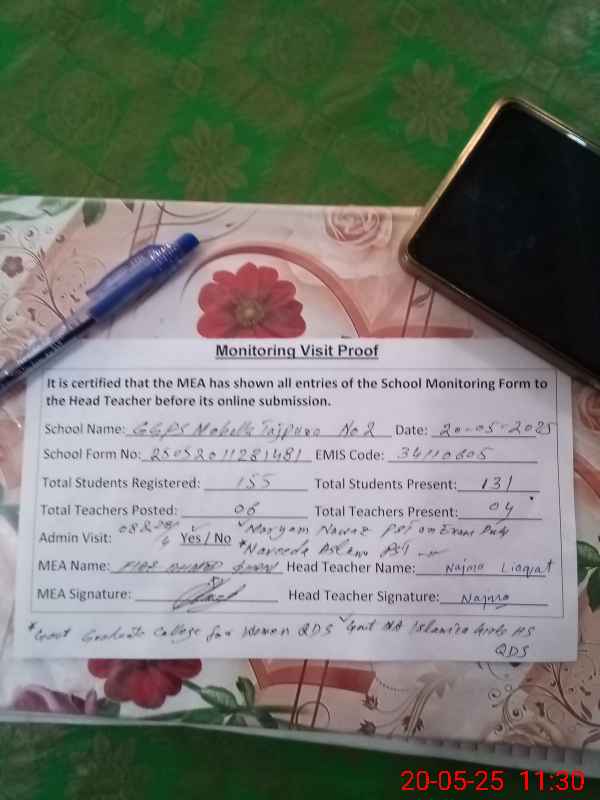 Monitoring Visit Proof
It is certified that the MEA has shown all entries of the School Monitoring Form to
the Head Teacher before its online submission.
School Name: GGPS Mohalla Tajpura No 2 Date: 20-05-2025
School Form No: 25052011281481 EMIS Code: 34110605
Total Students Registered: 155 Total Students Present: 131
Total Teachers Posted: 06 Total Teachers Present: 04
Admin Visit: Yes / No Maryam Nawaz PST on Exam Duty
*Naveeda Aslam PST
MEA Name: Head Teacher Name: Najma Liaqat
MEA Signature: Head Teacher Signature: Najma
*Govt Graduate College for Women QDS Govt MA Islamica Girls HS
QDS
20-05-25 11:30